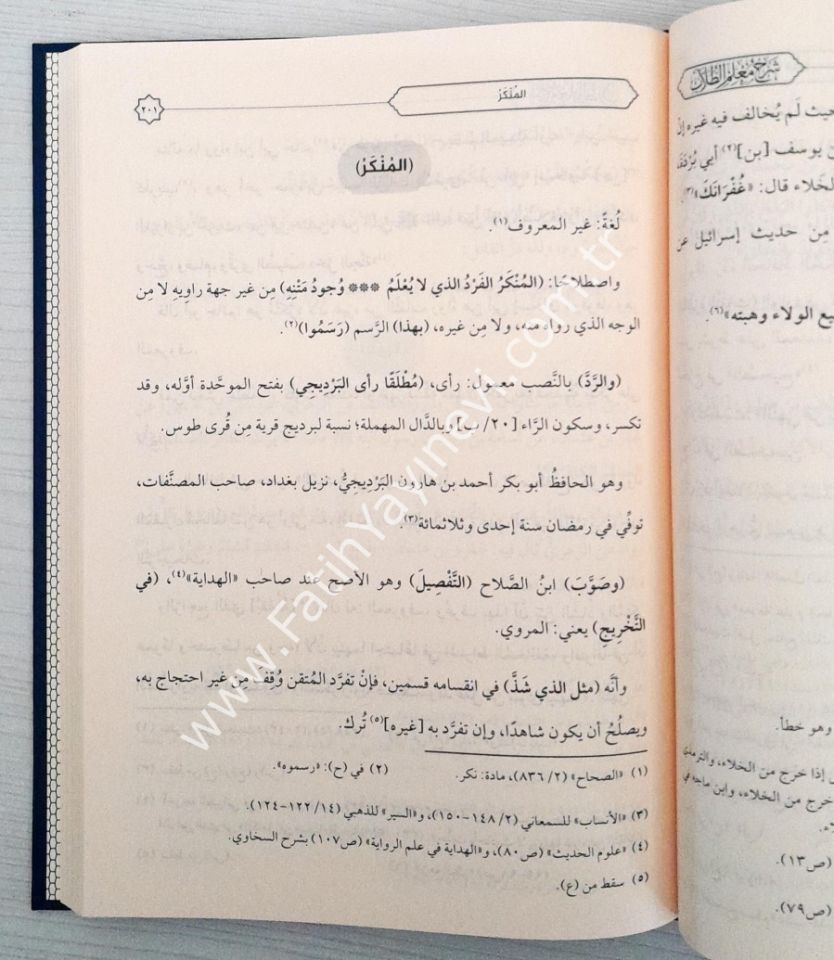 شرح معلم الطلاب
حيث لم يُخالف فيه غيره
بن يوسف [بن](٢) أبي بُردة
الخلاء قال: «غُفْرَانَكَ»(٣).
مِن حديث إسرائيل عن
بيع الولاء وهبته»(٦).
وهو خطأ.
إذا خرج من الخلاء، والترمذي
خرج من الخلاء، وابن ماجه في
(ص١٣).
(ص٧٩).
المُنْكَرُ
٢٠١
(المُنْكَرُ)
لُغَةً: غير المعروف(١).
واصطلاحًا: (المُنْكَرُ الفَرْدُ الذي لا يُعْلَمُ *** وُجودُ مَتْنِهِ) مِن غير جهة راويهِ لا مِن
الوجه الذي رواه منه، ولا مِن غيره، (بهذا) الرَّسم (رَسَمُوا)(٢).
(والرَّدَّ) بالنَّصب معمول: رأى، (مُطْلَقًا رأى البَرْدِيجِي) بفتح الموحَّدة أوَّله، وقد
تكسر، وسكون الرَّاء [٢٠/ب] وبالدَّال المهملة؛ نسبة لبرديج قرية مِن قُرى طوس.
وهو الحافظُ أبو بكر أحمد بن هارون البَرْدِيجيُّ، نزيل بغداد، صاحب المصنَّفات،
توفِّي في رمضان سنة إحدى وثلاثمائة(٣).
(وصَوَّبَ) ابنُ الصَّلاح (التَّفْصِيلَ) وهو الأصح عند صاحب «الهداية»(٤)، (في
التَّخْرِيجِ) يعني: المروي.
وأنَّه (مثل الذي شَذَّ) في انقسامه قسمين، فإنْ تفرَّد المُتقن وُقِفَ مِن غير احتجاج به،
ويصلُحُ أن يكون شاهدًا، وإن تفرَّد به [غيره](٥) تُرك.
(١) «الصحاح» (٢/ ٨٣٦)، مادة: نكر. (٢) في (ح): «رسموه».
(٣) «الأنساب» للسمعاني (٢/ ١٤٨-١٥٠)، و«السير» للذهبي (١٤/ ١٢٢-١٢٤).
(٤) «علوم الحديث» (ص٨٠)، و«الهداية في علم الرواية» (ص١٠٧) بشرح السخاوي.
(٥) سقط من (ع).
www.FatihYayinevi.com.tr